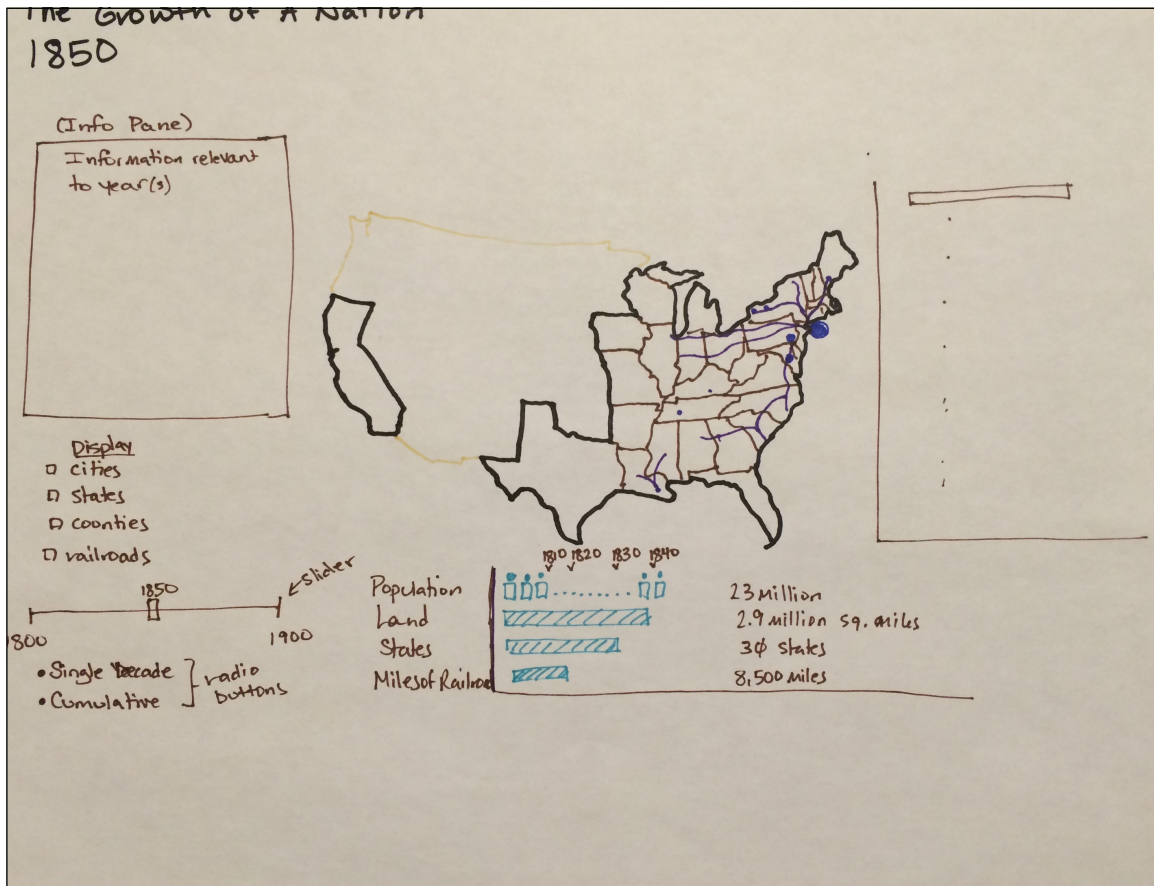 The Growth of A Nation
1850
(Info Pane)
Information relevant
to year(s)
Display
cities
states
counties
railroads
1850
slider
1800
1900
• Single Decade
• Cumulative
radio
buttons
1810 1820 1830 1840
Population
23 Million
Land
2.9 million sq. miles
States
30 states
Miles of Railroa
8,500 miles